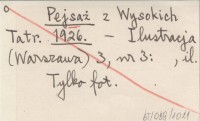 Pejsaż z Wysokich
Tatr. 1926. - Ilustracja
(Warszawa) 3, nr 3: , il.
Tylko fot.